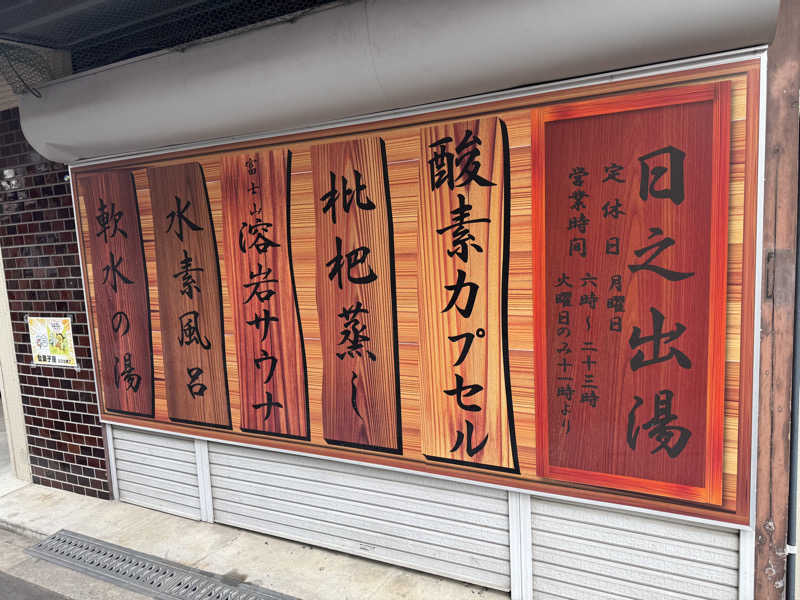 日之出湯
定休日 月曜日
営業時間 六時〜二十三時
火曜日のみ十一時より
酸素カプセル
枇杷蒸し
富士山溶岩サウナ
水素風呂
軟水の湯